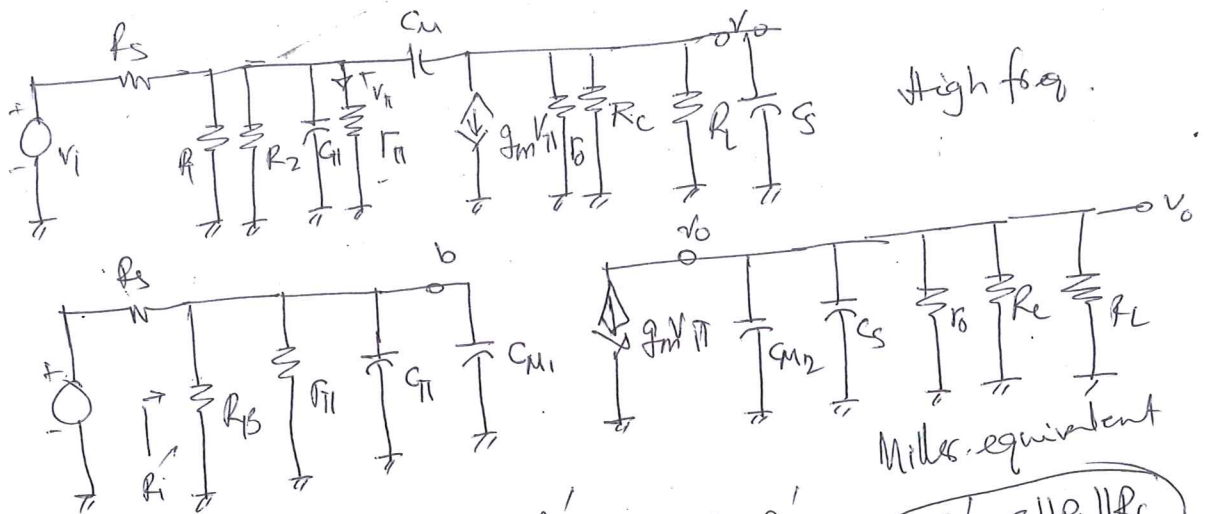 Rs
Cμ
Vo
High freq.
+
-
Vi
R
R2
Cπ
Vπ
rπ
gmVπ
ro
Rc
RL
Cs
Rs
b
Vo
Vo
+
-
Ri
RB
rπ
Cπ
CM1
gmVπ
CM2
Cs
ro
Rc
RL
Miller equivalent